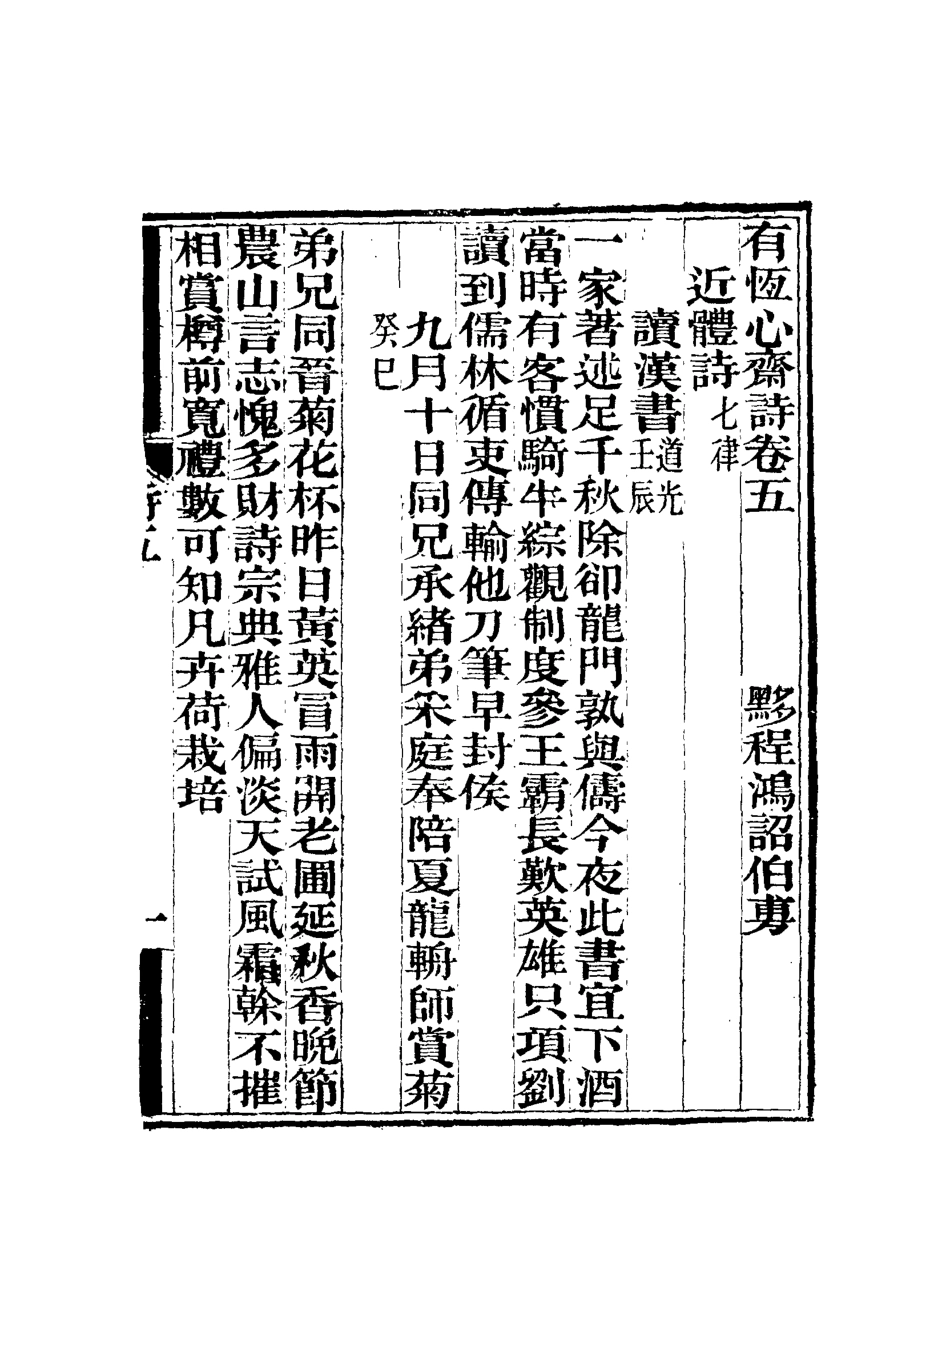 有恆心齋詩卷五　　　黟程鴻詔伯旉
近體詩七律
讀漢書道光壬辰
一家著述足千秋除卻龍門孰與儔今夜此書宜下酒
當時有客慣騎牛綜觀制度參王霸長歎英雄只項劉
讀到儒林循吏傳輸他刀筆早封侯
九月十日同兄承緒弟采庭奉陪夏龍輈師賞菊
癸巳
弟兄同晉菊花杯昨日黃英冒雨開老圃延秋香晚節
農山言志愧多財詩宗典雅人偏淡天試風霜榦不摧
相賞樽前寬禮數可知凡卉荷栽培
詩五
一